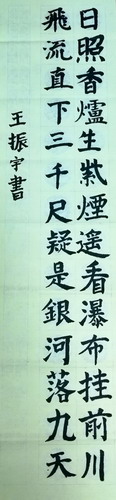 日照香爐生紫煙遙看瀑布挂前川
飛流直下三千尺疑是銀河落九天
王振宇書